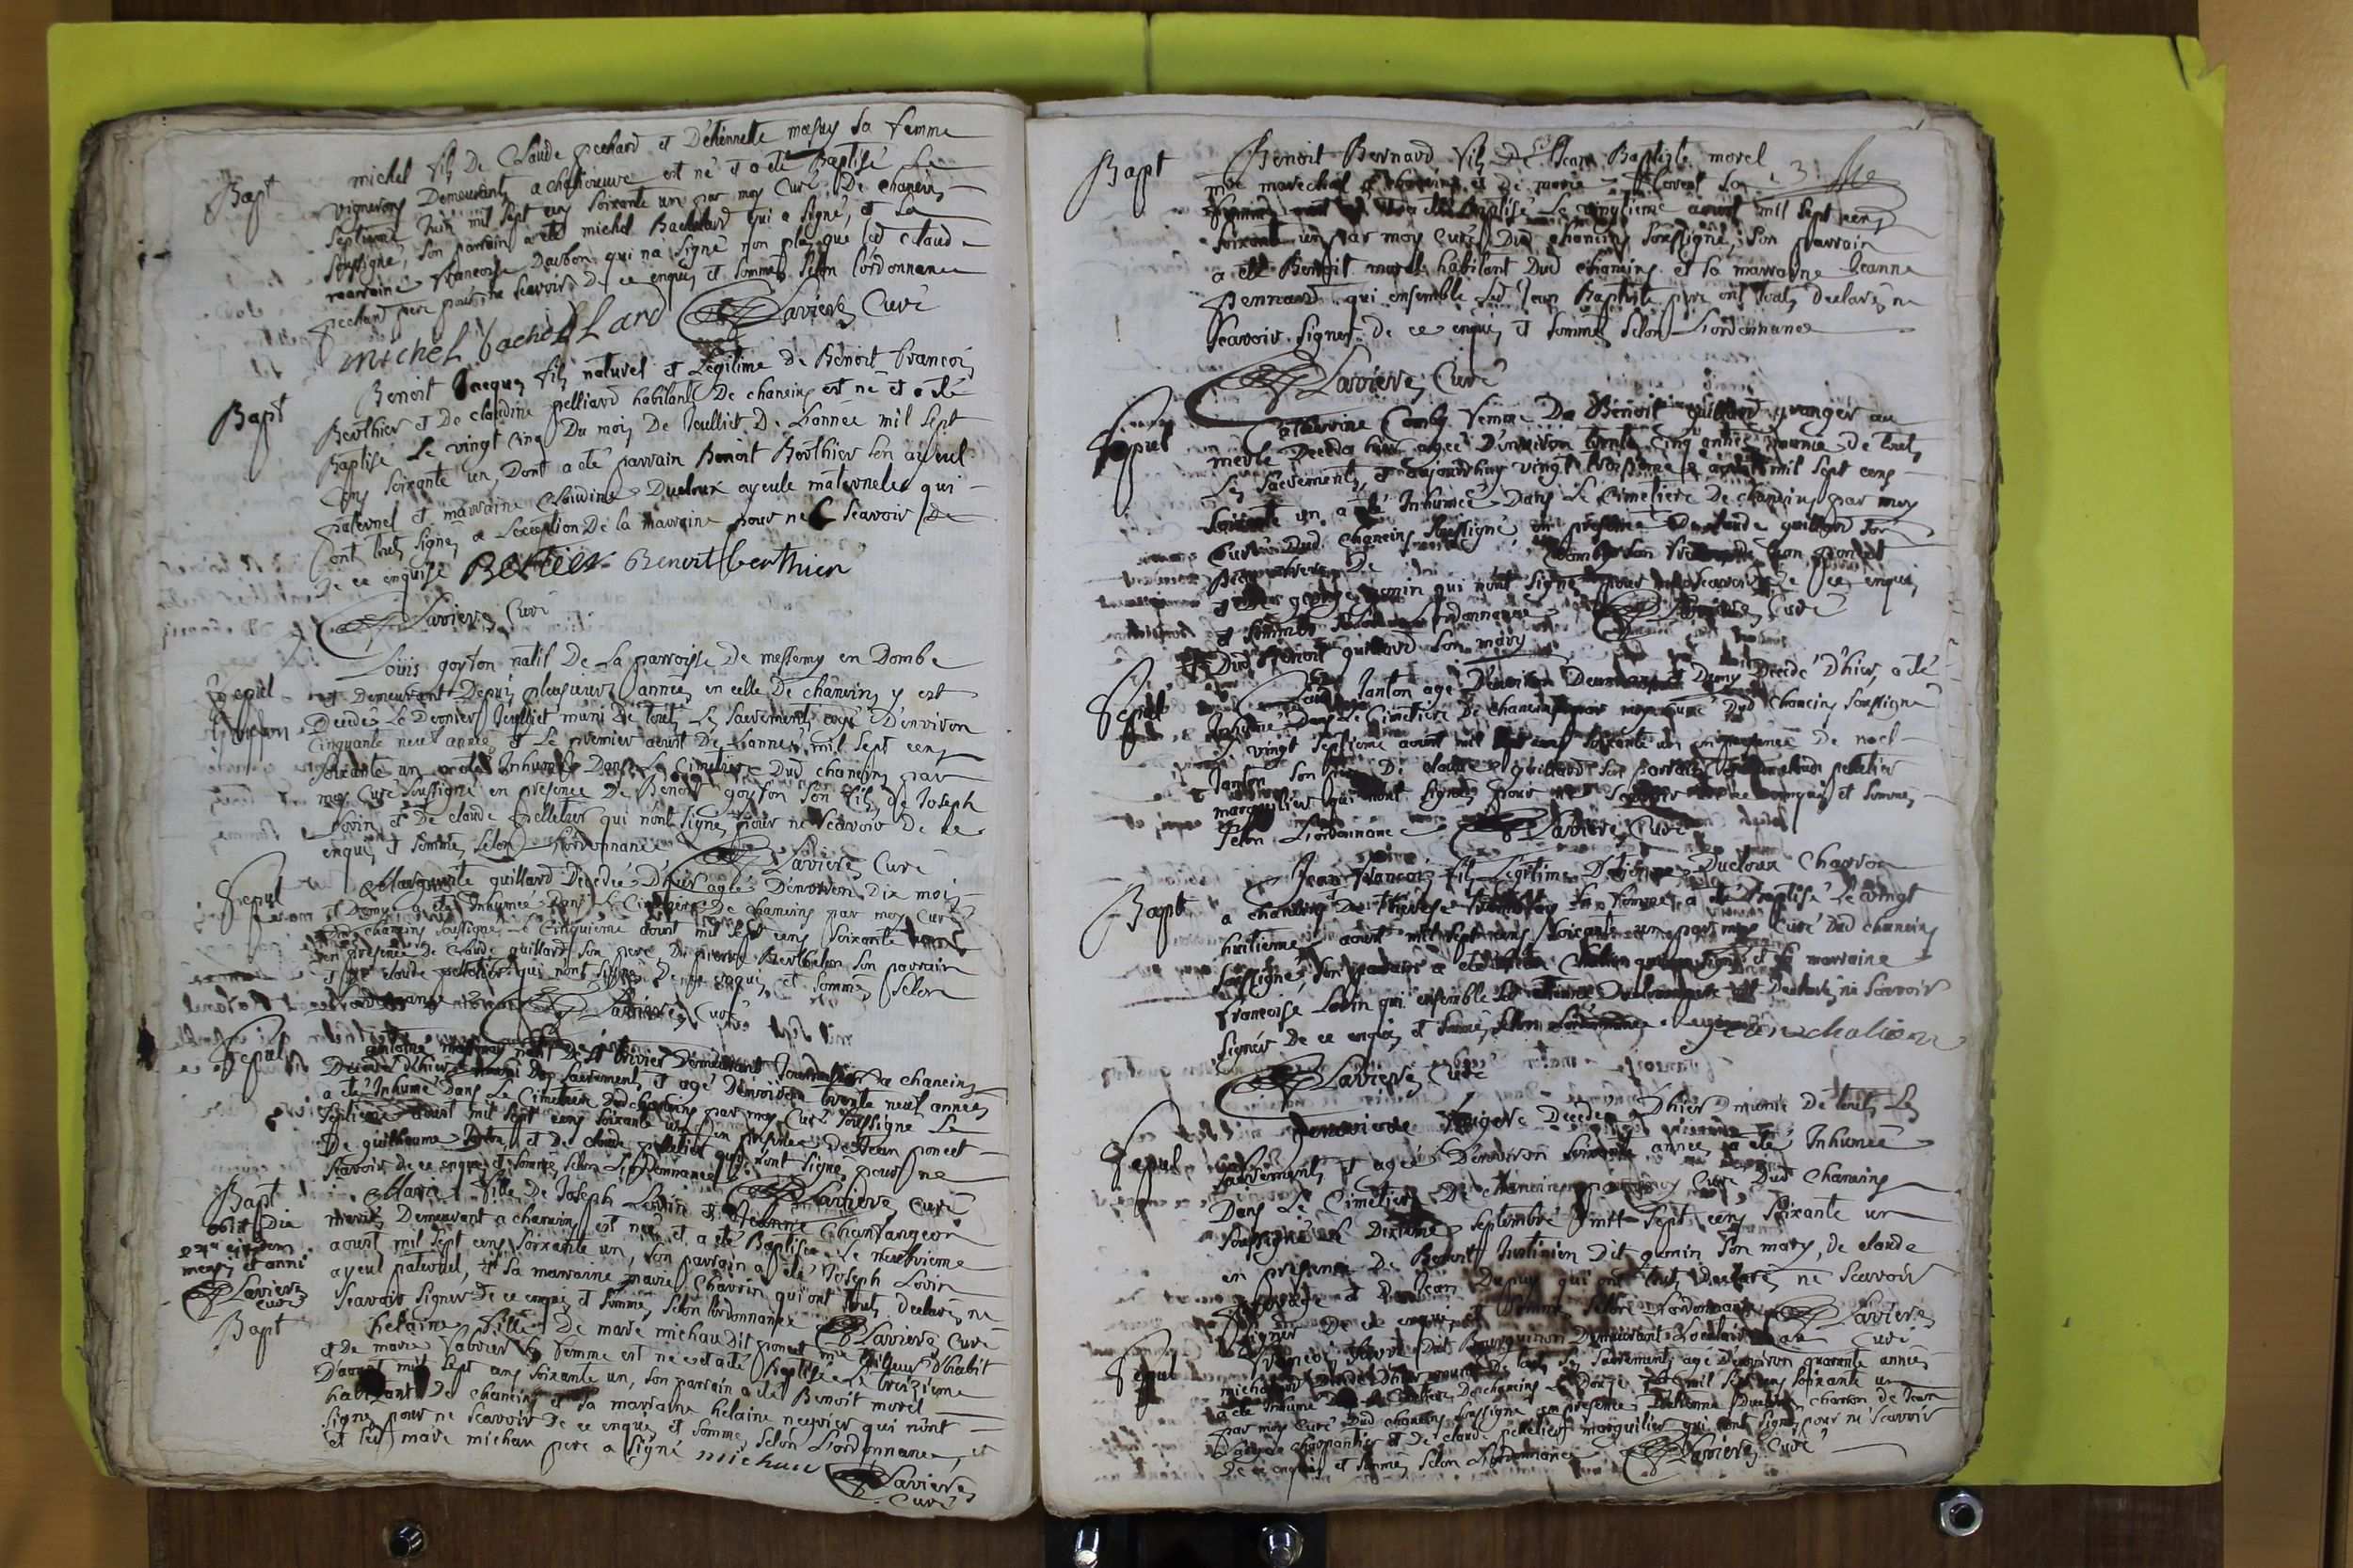 Bapt
michel fils De Claude pechard et D'Etiennette masuy sa femme
vignerons Demeurants a chaneins est né et a eté Baptisé Le
septieme Juin mil sept cens soixante un par moy Curé De chaneins
soussigné, son parrain a eté michel Bachelard qui a signé, et La
marraine francoise Darbon qui na signé non plus que led Claude
pechard pere pour ne scavoir De ce enquis et sommés selon l'ordonnance
michel Bachellard Lavieres Curé
Bapt
Benoit Jacques fils naturel et Legitime de Benoit francois
Berthier et De claudine pelliard habitants De chaneins est né et a eté
Baptisé Le vingt cinq Du mois De Jeulliet De L'année mil sept
cens soixante un, Dont a eté parrain Benoit Berthier son ayeul
paternel et marraine Claudine Ducloux ayeule maternelle qui
ont touts signés a L'exception De la marraine pour ne scavoir De
De ce enquise Bertier Benoit berthier
Lavieres Curé
Sepul
goyffon
Loüis goyfon natif De La parroisse De messemy en Dombe
Demeurant Depuis plusieurs années en celle De chaneins y est
Decedé Le Dernier Jeulliet muni De touts Les sacrements agé D'environ
cinquante neuf années et Le premier aoust De L'année mil sept cens
soixante un a eté Inhumé Dans Le Cimetiere Dud chaneins par
moy Curé soussigné en presence De Benoit goyfon son fils, de Joseph
Lovin et De claude pelletier qui n'ont signés pour ne scavoir De ce
enquis et sommés selon L'ordonnance Lavieres Curé
Sepul
Marguerite guillard Decedée D'hier agée D'environ Dix mois
et Demy a eté Inhumée Dans Le Cimetiere De chaneins par moy Curé
Dud chaneins soussigné Le cinquieme aoust mil sept cens soixante un
en presence de Claude guillard son pere De pierre Berthelon son parrain
et De claude pelletier qui n'ont signés De ce enquis et sommés selon
L'ordonnance Lavieres Curé
Sepul
antoine natif De st trivier Demeurant a chaneins
Decedé D'hier muni Des sacrements et agé D'environ trente neuf années
a eté Inhumé Dans Le Cimetiere Dud chaneins par moy Curé soussigné Le
septieme aoust mil sept cens soixante un en presence De Jean poncet
De guilhaume et De claude pelletier qui n'ont signés pour ne
scavoir de ce enquis et sommés selon L'ordonnance Lavieres Curé
Bapt
obiit Die
ejusdem
mensis et anni
Lavieres
curé
Marie fille De Joseph Lovin et Jeanne Chanfangeon
mariés Demeurant a chaneins est née et a eté Baptisée Le neufvieme
aoust mil sept cens soixante un, son parrain a eté Joseph Lovin
ayeul paternel, et sa marraine marie Charvin qui ont touts declarés ne
scavoir signer De ce enquis et sommés selon l'ordonnance Lavieres Curé
Bapt
helaine fille De marc michau dit poncet me tailleur D'habit
et de marie Vabrier sa femme est née et a eté Baptisée Le treizieme
D'aoust mil sept cens soixante un, son parrain a eté Benoit morel
habitant De chaneins et sa marraine helaine qui n'ont
signé pour ne scavoir De ce enquis et sommés selon L'ordonnance, et
et led marc michau pere a signé michau Lavieres
Curé
3
Bapt
Benoit Bernard fils De Jean Baptiste morel
me marechal a chaneins et De marie son
a eté Baptisé Le vingtieme aoust mil sept cens
soixante un par moy Curé Dud chaneins soussigné, son parrain
a eté Benoit morel habitant Dud chaneins et sa marraine Jeanne
Bennard qui ensemble Led Jean Baptiste pere ont touts declarés ne
scavoir signer de ce enquis et sommés selon L'ordonnance
Lavieres Curé
Sepul
Catherine Comby femme De Benoit guillard granger au
merle Deceda hier agée D'environ trente cinq années munie De touts
Les sacrements, et aujourdhuy vingt aoust mil sept cens
soixante un a eté Inhumée Dans Le Cimetiere De chaneins par moy
Curé Dud chaneins soussigné en presence De claude guillard son
De Comby son
et De qui n'ont signé pour ne scavoir De ce enquis
et sommés L'ordonnance Lavieres Curé
Dud Benoit guillard son mary
Sepul
Janton agé D'environ Deux ans et Demy Decedé D'hier, a eté
Inhumé Dans Le Cimetiere De chaneins par moy Curé Dud Chaneins soussigné
Le vingt septieme aoust mil sept cens soixante un en presence De noel
Janton son pere De claude guillard son parrain et De claude pelletier
marguilier qui n'ont signés pour ne scavoir De ce enquis et sommés
selon L'ordonnance Lavieres Curé
Bapt
Jean francois fils Legitime D'Etienne Ducloux Charron
a chaneins De therese sa femme a eté Baptisé Le vingt
huitieme aoust mil sept cens soixante un par moy Curé Dud chaneins
soussigné, son parrain a eté Jean Chalion qui a signé et sa marraine
francoise Lovin qui ensemble Led etienne Ducloux pere ont Declarés ne scavoir
signer de ce enquis et sommés selon L'ordonnance Jean chalion
Lavieres Curé
Sepul
Genevieve Decedée D'hier munie De touts Les
sacrements et agée D'environ soixante années a eté Inhumée
Dans Le Cimetiere De chaneins par moy Curé Dud Chaneins
soussigné Le Dixieme septembre mil sept cens soixante un
en presence de Benoit Justinien Dit gonin son mary, de claude
et De Jean Dupuy qui ont touts Declarés ne scavoir
signer De ce enquis et sommés selon L'ordonnance Lavieres
Curé
Sepul
francois favre Dit Bourguinon Demeurant Locataire au
Decedé D'hier muni De touts Les sacrements agé D'environ quarante années
a eté Inhumé Dans Le Cimetiere De chaneins Le Douze mil sept cens soixante un
par moy Curé Dud chaneins soussigné en presence D'Etienne Ducloux charron de Jean
charpantier et De claude pelletier marguilier qui n'ont signé pour ne scavoir
De ce enquis et sommés selon L'ordonnance Lavieres Curé